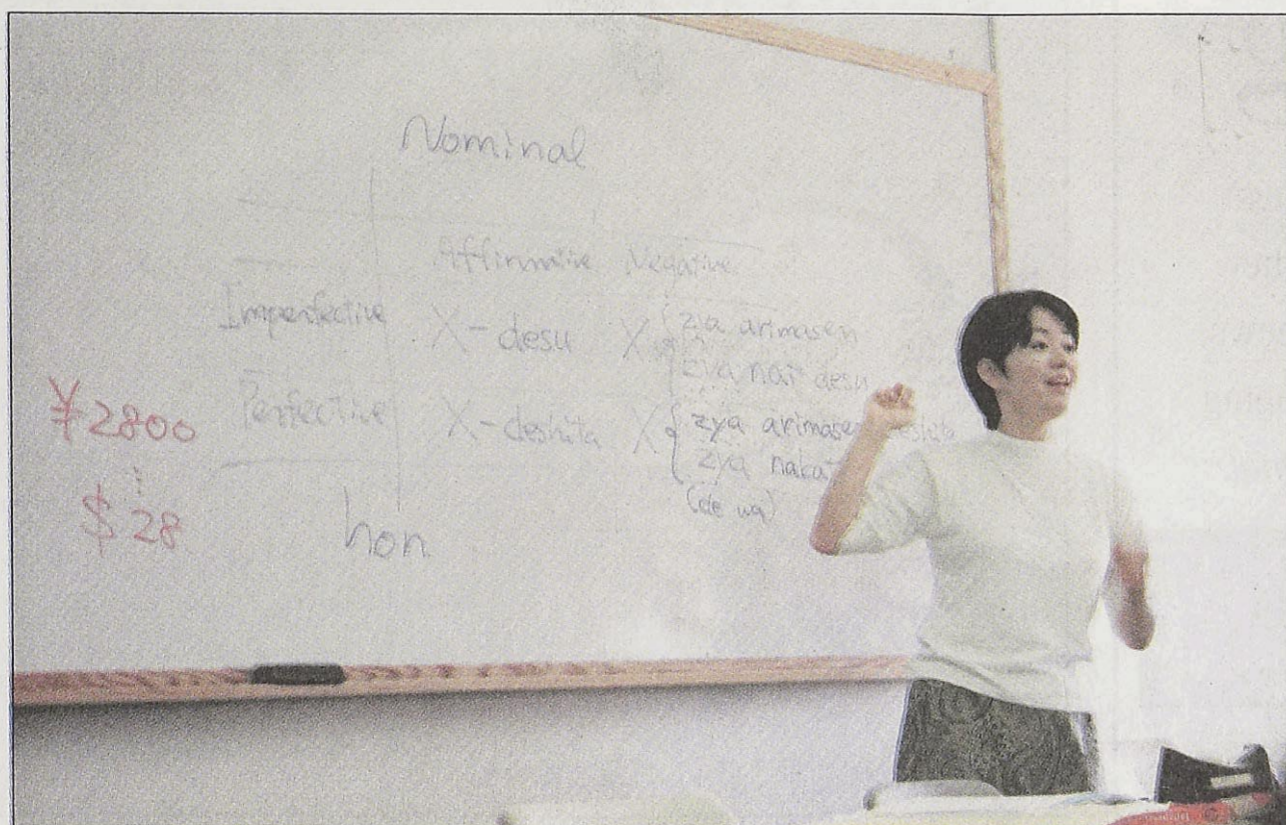 Nominal
Affirmative Negative
Imperfective X-desu X { zya arimasen
zya nai desu
Perfective X-deshita X { zya arimasen deshita
zya nakat
(de wa)
¥2800
$28
hon